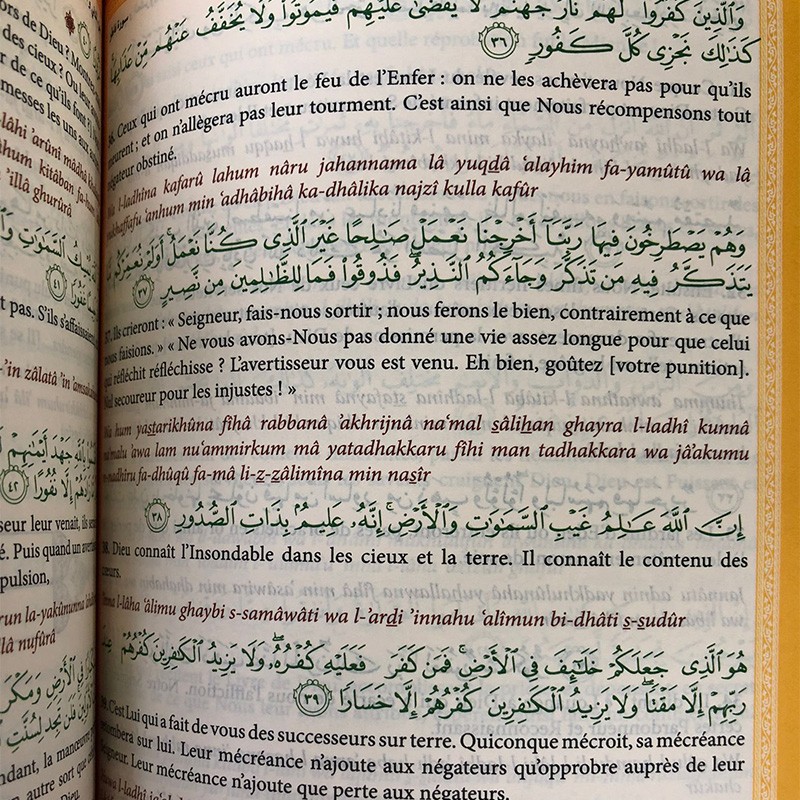 ors de Dieu ? Montrez
des cieux ? Ou leur
r de ce qu'ils font ?
messes les uns aux
-lâhi 'arûnî mâdhâ
ahum kitâban fa-hum
'illâ ghurûrâ
٤١
t pas. S'ils s'affaissaient
-'in zâlatâ 'in 'amsaka
جَهْدَ أَيْمَٰنِهِمْ
إِلَّا نُفُورًا ٤٢
seur leur venait, ils
é. Puis quand un avertisseur
pulsion,
run la-yakûnunna
llâ nufûrâ
ٱلْأَرْضِ وَمَكْرَ
فَلَن تَجِدَ لِسُنَّتِ
ndant, la manœuvre
autre sort que
Dieu.
وَٱلَّذِينَ كَفَرُوا۟ لَهُمْ نَارُ جَهَنَّمَ لَا يُقْضَىٰ عَلَيْهِمْ فَيَمُوتُوا۟ وَلَا يُخَفَّفُ عَنْهُم مِّنْ عَذَابِهَا
كَذَٰلِكَ نَجْزِى كُلَّ كَفُورٍ ٣٦
36. Ceux qui ont mécru auront le feu de l'Enfer : on ne les achèvera pas pour qu'ils
meurent ; et on n'allègera pas leur tourment. C'est ainsi que Nous récompensons tout
négateur obstiné.
Wa l-ladhîna kafarû lahum nâru jahannama lâ yuqdâ 'alayhim fa-yamûtû wa lâ
yukhaffafu 'anhum min 'adhâbihâ ka-dhâlika najzî kulla kafûr
وَهُمْ يَصْطَرِخُونَ فِيهَا رَبَّنَآ أَخْرِجْنَا نَعْمَلْ صَٰلِحًا غَيْرَ ٱلَّذِى كُنَّا نَعْمَلُ أَوَلَمْ نُعَمِّرْكُم مَّا
يَتَذَكَّرُ فِيهِ مَن تَذَكَّرَ وَجَآءَكُمُ ٱلنَّذِيرُ فَذُوقُوا۟ فَمَا لِلظَّٰلِمِينَ مِن نَّصِيرٍ ٣٧
37. Ils crieront : « Seigneur, fais-nous sortir ; nous ferons le bien, contrairement à ce que
nous faisions. » « Ne vous avons-Nous pas donné une vie assez longue pour que celui
qui réfléchit réfléchisse ? L'avertisseur vous est venu. Eh bien, goûtez [votre punition].
Nul secoureur pour les injustes ! »
Wa hum yastarikhûna fîhâ rabbanâ 'akhrijnâ na'mal sâlihan ghayra l-ladhî kunnâ
na'malu 'awa lam nu'ammirkum mâ yatadhakkaru fîhi man tadhakkara wa jâ'akumu
n-nadhîru fa-dhûqû fa-mâ li-z-zâlimîna min nasîr
إِنَّ ٱللَّهَ عَٰلِمُ غَيْبِ ٱلسَّمَٰوَٰتِ وَٱلْأَرْضِ إِنَّهُۥ عَلِيمٌۢ بِذَاتِ ٱلصُّدُورِ ٣٨
38. Dieu connaît l'Insondable dans les cieux et la terre. Il connaît le contenu des
cœurs.
'Inna l-lâha 'âlimu ghaybi s-samâwâti wa l-'ardi 'innahu 'alîmun bi-dhâti s-sudûr
هُوَ ٱلَّذِى جَعَلَكُمْ خَلَٰٓئِفَ فِى ٱلْأَرْضِ فَمَن كَفَرَ فَعَلَيْهِ كُفْرُهُۥ وَلَا يَزِيدُ ٱلْكَٰفِرِينَ كُفْرُهُمْ عِندَ
رَبِّهِمْ إِلَّا مَقْتًا وَلَا يَزِيدُ ٱلْكَٰفِرِينَ كُفْرُهُمْ إِلَّا خَسَارًا ٣٩
39. C'est Lui qui a fait de vous des successeurs sur terre. Quiconque mécroit, sa mécréance
retombera sur lui. Leur mécréance n'ajoute aux négateurs qu'opprobre auprès de leur
Seigneur. Leur mécréance n'ajoute que perte aux négateurs.